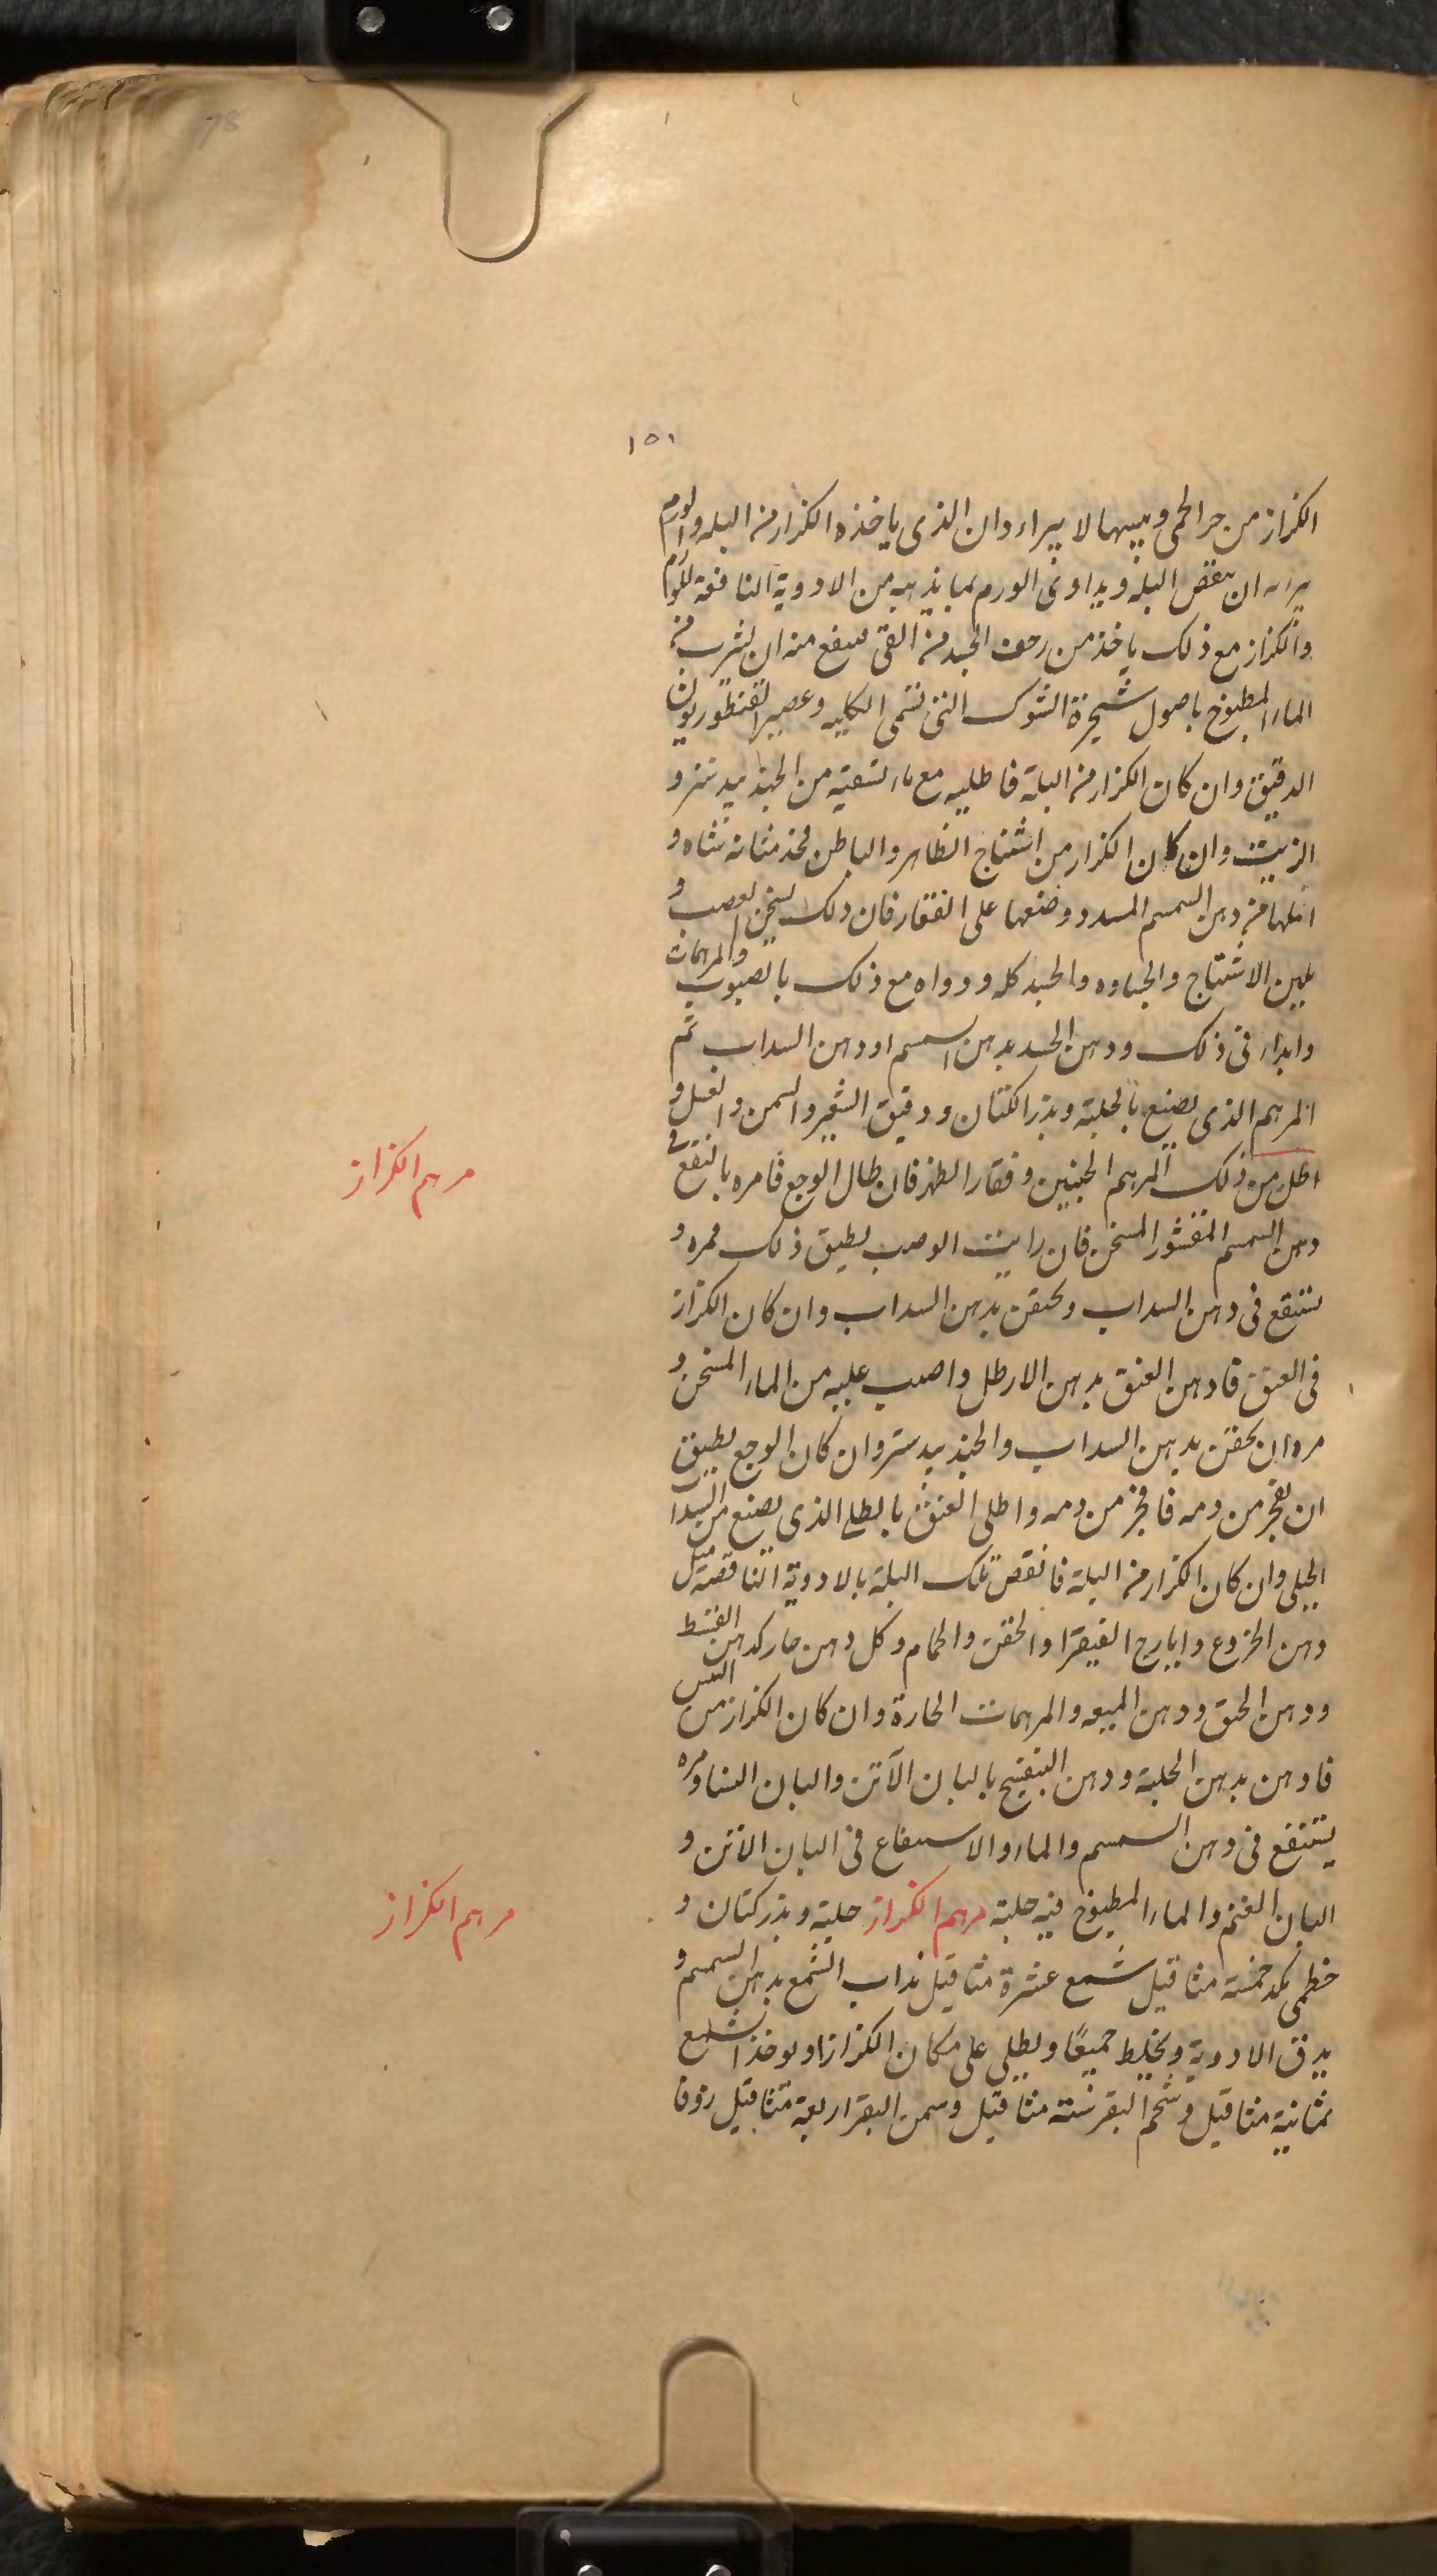 ١٥١
الكزاز من حر الحمى ويبسها لا يبراء وان الذى ياخذه الكزاز من البله والورم
يبرء ان ينقص البلة ويداوى الورم بما يذهبه من الادوية النافعة للورم
والكزاز مع ذلك ياخذ من الجسد من القى منه ان يشرب من
الماء المطبوخ باصول شجرة الشوك التى تسمى وعصير القنطوريون
الدقيق وان كان الكزاز من البلة فاطليه مع ما تسقيه من الجندبيدستر و
الزيت وان كان الكزاز من اشتناج الظاهر والباطن فخذ مثانة شاه و
املها من دهن السمسم وضعها على الفقار فان ذلك يسخن العصب و
يلين الاشتناج والجساوه والجسد كله ودواه مع ذلك بالصبوب والمرهمات
وابداء فى ذلك ودهن الجسد بدهن السمسم او دهن السداب ثم
المرهم الذى يصنع بالحلبة وبذر الكتان ودقيق الشعير والسمن والعسل و
اطل من ذلك المرهم الجنبين وفقار الظهر فان طال الوجع فامره بالنقع فى
دهن السمسم المقشور المسخن فان رايت الوصب يطيق ذلك فمره و
يستنقع فى دهن السداب ويحتقن بدهن السداب وان كان الكزاز
فى العنق فادهن العنق بدهن الارطل واصبب عليه من الماء المسخن و
مره ان يحقن بدهن السداب والجندبيدستر وان كان الوجع يطيق
ان يفجر من دمه فافجر من دمه واطلى العنق بالطلى الذى يصنع من السداب
الجبلى وان كان الكزاز من البلة فانقص تلك البلة بالادوية الناقصة مثل
دهن الخروع وايارج الفيقرا والحقن والحمام وكل دهن حار كدهن القسط
ودهن الحبق ودهن الميعه والمرهمات الحارة وان كان الكزاز من اليبس
فادهن بدهن الحلبة ودهن البنفسج بالبان الآتن والبان النسا ومره
يستنقع فى دهن السمسم والماء والاستنقاع فى البان الاتن و
البان الغنم والماء المطبوخ فيه حلبة مرهم الكزاز حلبة وبذر كتان و
خطمى خمسة مثاقيل شمع عشرة مثاقيل يذاب الشمع بدهن السمسم و
يدق الادوية ويخلط جميعًا ويطلى على مكان الكزاز او يوخذ الشمع
ثمانية مثاقيل وشحم البقر ستة مثاقيل وسمن البقر اربعة مثاقيل زوفا
مرهم الكزاز
مرهم الكزاز